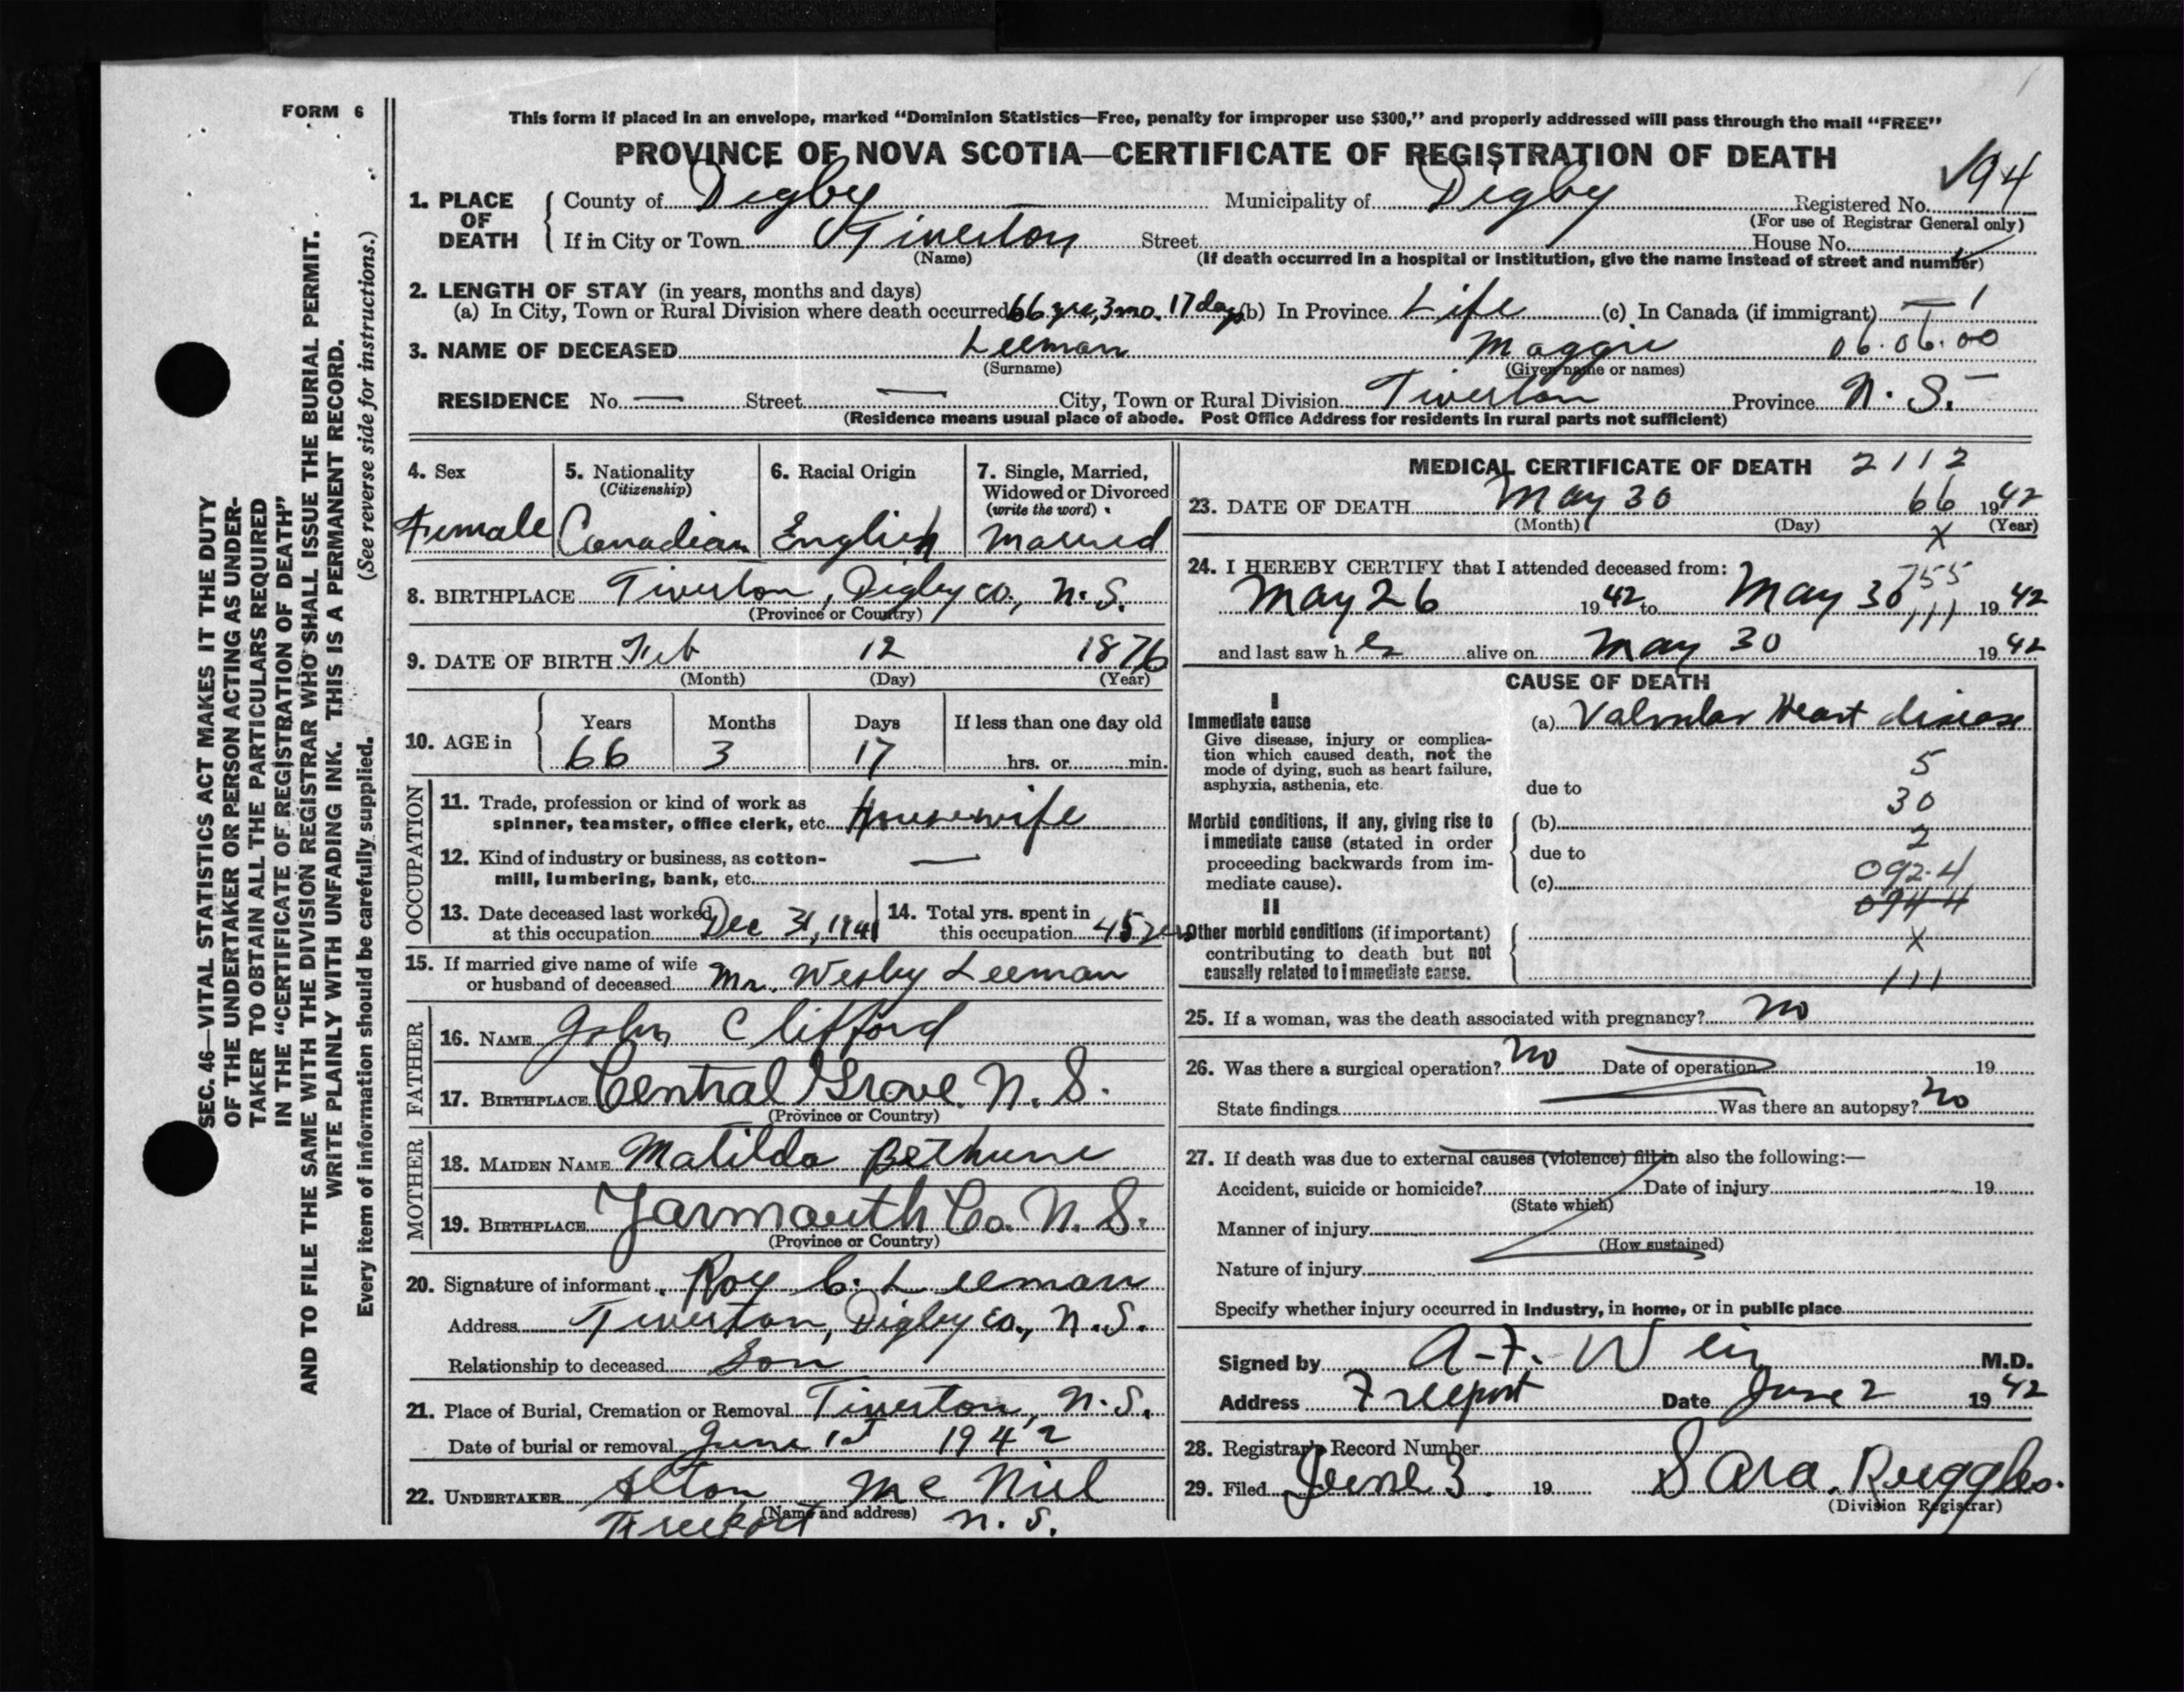 FORM 6
This form if placed in an envelope, marked "Dominion Statistics—Free, penalty for improper use $300," and properly addressed will pass through the mail "FREE"
PROVINCE OF NOVA SCOTIA—CERTIFICATE OF REGISTRATION OF DEATH
1. PLACE OF DEATH County of Digby Municipality of Digby Registered No. 94
(For use of Registrar General only)
If in City or Town Tiverton Street House No.
(Name) (If death occurred in a hospital or institution, give the name instead of street and number)
2. LENGTH OF STAY (in years, months and days)
(a) In City, Town or Rural Division where death occurred 66 yrs, 3 mo. 17 days (b) In Province Life (c) In Canada (if immigrant) — 1
3. NAME OF DECEASED Leeman Maggie 06.06.00
(Surname) (Given name or names)
RESIDENCE No. — Street — City, Town or Rural Division Tiverton Province N. S.
(Residence means usual place of abode. Post Office Address for residents in rural parts not sufficient)
4. Sex Female
5. Nationality (Citizenship) Canadian
6. Racial Origin English
7. Single, Married, Widowed or Divorced (write the word) Married
8. BIRTHPLACE Tiverton, Digby Co., N.S.
(Province or Country)
9. DATE OF BIRTH Feb 12 1876
(Month) (Day) (Year)
10. AGE in Years Months Days If less than one day old
66 3 17 hrs. or min.
OCCUPATION
11. Trade, profession or kind of work as spinner, teamster, office clerk, etc. Housewife
12. Kind of industry or business, as cotton-mill, lumbering, bank, etc. —
13. Date deceased last worked at this occupation Dec 31, 1941
14. Total yrs. spent in this occupation 45 yrs
15. If married give name of wife or husband of deceased Mr. Wesley Leeman
FATHER
16. NAME John Clifford
17. BIRTHPLACE Central Grove N. S.
(Province or Country)
MOTHER
18. MAIDEN NAME Matilda Bethune
19. BIRTHPLACE Yarmouth Co. N. S.
(Province or Country)
20. Signature of informant Roy C. Leeman
Address Tiverton, Digby Co., N.S.
Relationship to deceased Son
21. Place of Burial, Cremation or Removal Tiverton, N.S.
Date of burial or removal June 1st 1942
22. UNDERTAKER Alton Mc Niel
(Name and address)
Freeport N. S.
MEDICAL CERTIFICATE OF DEATH 2112
23. DATE OF DEATH May 30 66 1942
(Month) (Day) (Year)
X
24. I HEREBY CERTIFY that I attended deceased from: 755
May 26 1942 to May 30 111 1942
and last saw h er alive on May 30 1942
CAUSE OF DEATH
I
Immediate cause (a) Valvular Heart disease
Give disease, injury or complication which caused death, not the mode of dying, such as heart failure, asphyxia, asthenia, etc.
5
due to
30
Morbid conditions, if any, giving rise to immediate cause (stated in order proceeding backwards from immediate cause).
(b)
2
due to
092.4
(c)
094 4
II
Other morbid conditions (if important) contributing to death but not causally related to immediate cause.
X
111
25. If a woman, was the death associated with pregnancy? no
26. Was there a surgical operation? no Date of operation 19
State findings Was there an autopsy? no
27. If death was due to external causes (violence) fill in also the following:—
Accident, suicide or homicide? Date of injury 19
(State which)
Manner of injury
(How sustained)
Nature of injury
Specify whether injury occurred in Industry, in home, or in public place
Signed by A. F. Weir M.D.
Address Freeport Date June 2 1942
28. Registrar's Record Number
29. Filed June 3. 19 Sara. Ruggles.
(Division Registrar)
SEC. 46—VITAL STATISTICS ACT MAKES IT THE DUTY
OF THE UNDERTAKER OR PERSON ACTING AS UNDER-
TAKER TO OBTAIN ALL THE PARTICULARS REQUIRED
IN THE "CERTIFICATE OF REGISTRATION OF DEATH"
AND TO FILE THE SAME WITH THE DIVISION REGISTRAR WHO SHALL ISSUE THE BURIAL PERMIT.
WRITE PLAINLY WITH UNFADING INK. THIS IS A PERMANENT RECORD.
Every item of information should be carefully supplied. (See reverse side for instructions.)